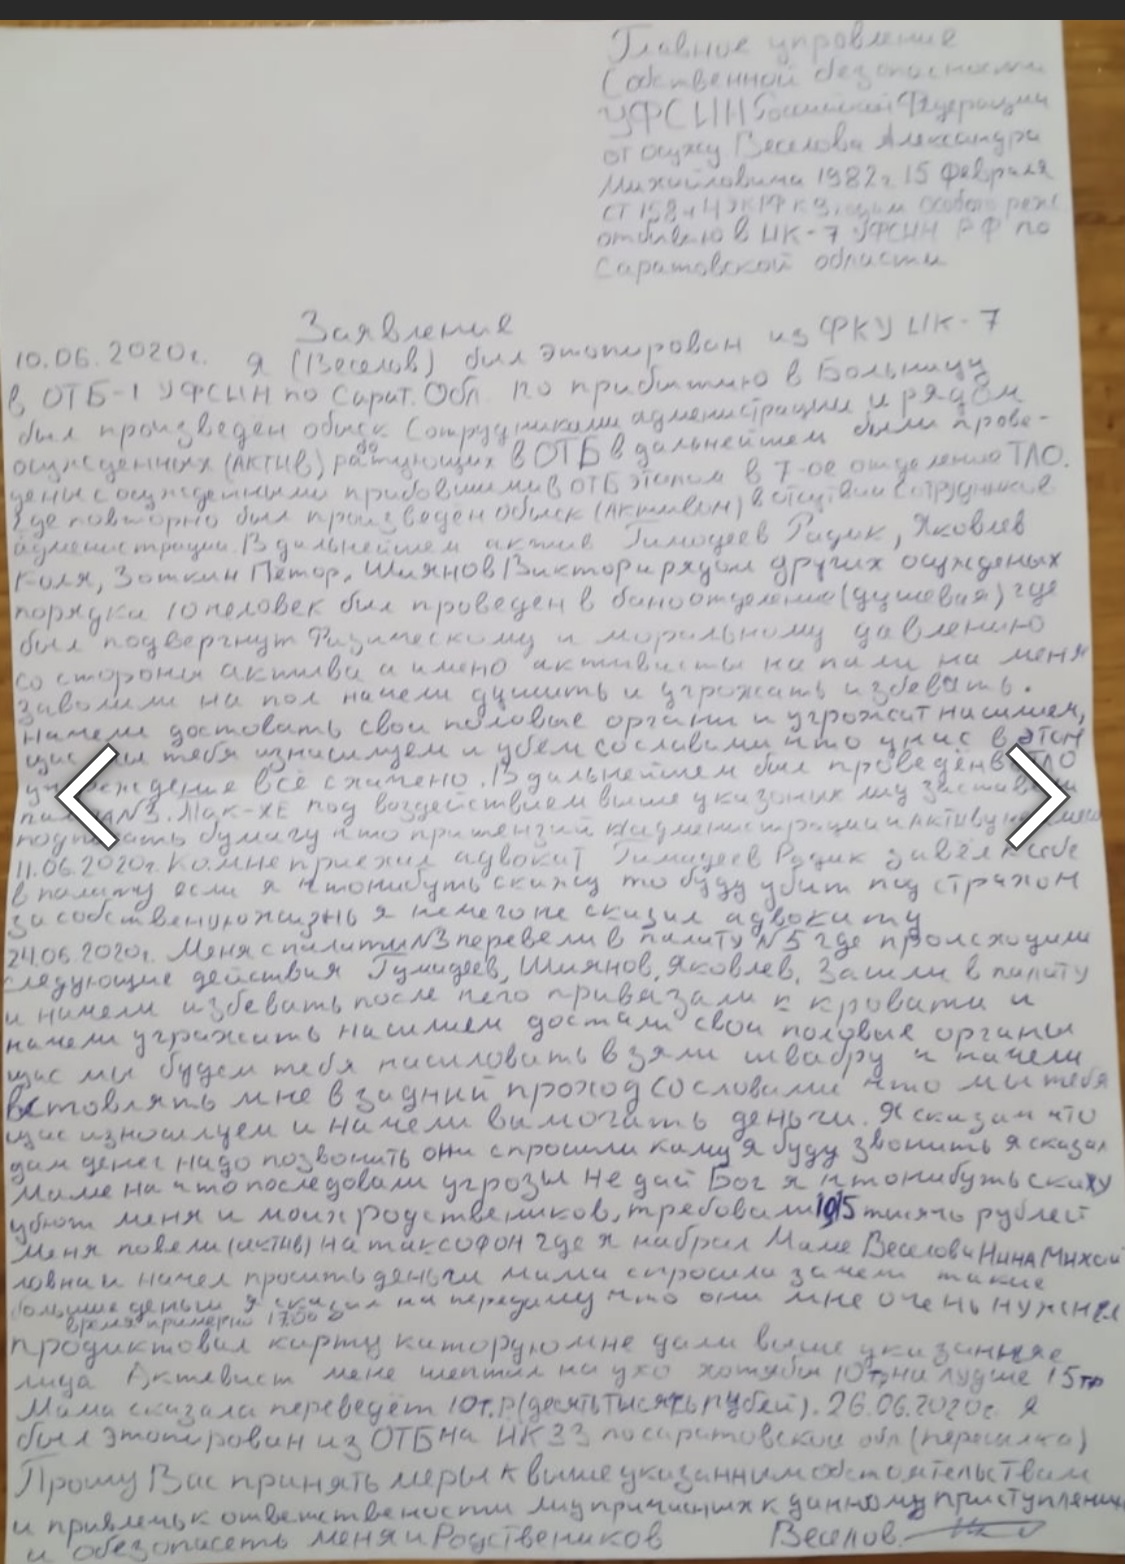 Главное упровление
Собственной безопасности
УФСИН Российской Федерации
от осужу Веселова Александра
Михайловича 1982г 15 Февраля
СТ 158 ч 4 УКРФ Особого реж
отбываю в ИК-7 УФСИН РФ по
Саратовской области
Заявление
10.06.2020г. я (Веселов) был этопирован из ФКУ ИК-7
в ОТБ-1 УФСИН по Сарат. Обл. по прибытию в Больницу
был произведён обыск Сотрудниками администрации и рядом
осужденных (АКТИВ) в ОТБ в дальнейшем были прове-
дены с осужденными прибовшими в ОТБ этапом в 7-ое отделение ТЛО.
где повторно был произведён обыск (Активом) в отсутвии Сотрудников
администрации. В дальнейшем актив Гимадеев Радик, Яковлев
Коля, Зоткин Пётор, Шиянов Виктор и рядом других осужденых
порядка 10 человек был проведен в баноотделение (душевая) где
был подвергнут Физическому и моральному давлению
со стороны актива а имено активисты напали на меня
завалили на пол начели душить и угрожать избевать.
начели достовать свои половые органы и угрожат насилием,
щас мы тебя изнасилуем и убём сословами что у нас в этом
учреждение всё схачено. В дальнейшем был проведён в ТЛО
палата №3. Так-же под воздействием выше указоных лиц заставили
подписать бумагу что притензий к администрации и активу не имею
11.06.2020г. Ко мне приехал адвокат Гимадеев Радик завёл к себе
в палату если я чтонибуть скажу то буду убит под страхом
за собственую жизнь я нечего не сказал адвокату
24.06.2020г. Меня с палаты №3 перевели в палату №5 где происходили
следующие действия Гимадеев, Шиянов, Яковлев, Зашли в палату
и начели избевать после чего привязали к кровати и
начели угражать насилием достали свои половые органы
щас мы будем тебя насиловать взяли швабру и начели
встовлять мне в задний проход со словами что мы тебя
щас изнасилуем и начели вымогать деньги. Я сказал что
дам денег надо позвонить они спросили каму я буду звонить я сказал
Маме на что последовали угрозы не дай Бог я чтонибуть скажу
убют меня и моих родствеников, требовали 15 тысячь рублей
Меня повели (актив) на таксофон где я набрал Маме Веселова Нина Михай
ловна и начел просить деньги мама спросила зачем такие
большие деньги я сказал на передачу что они мне очень нужны
время примерно 17:00
продиктовал карту каторую мне дали выше указанные
лица Активист мене шептал на ухо хотябы 10тр, но лудше 15тр
Мама сказала переведёт 10т.р (десять тысячь рублей). 26.06.2020г. я
был этопирован из ОТБ на ИК 33 посаратовской обл (пересылка)
Прошу Вас принять меры к вышеуказанним обстоятельствам
и привлечь к ответствености лиц причасных к данному приступлению
и обезопасеть меня и Родствеников Веселов